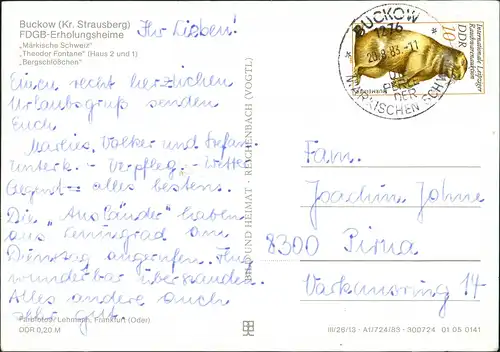 Buckow (Kr. Strausberg)
FDGB-Erholungsheime
"Märkische Schweiz"
"Theodor Fontane" (Haus 2 und 1)
"Bergschlößchen"
Ihr Lieben!
Einen recht herzlichen
Urlaubsgruß senden
Euch
Marlies, Volker und Stefan.
Unterk. - Verpfleg. - Wetter
Gegend - alles bestens.
Die "Ausländer" haben
aus Leningrad am
Dienstag angerufen. Flug
wunderbar überstanden.
Alles andere auch
sehr gut.
Farbfotos: Lehmann, Frankfurt (Oder)
DDR 0,20 M
BILD UND HEIMAT · REICHENBACH (VOGTL)
BUCKOW
1276
20.8.83.-11
DIE
PERLE
DER
MÄRKISCHEN SCHWEIZ
Internationale Leipziger
Rauchwarenauktion
DDR
10
Fam.
Joachim Johne
8300 Pirna
Varkausring 14
III/26/13 · A1/724/83 · 300724 01 05 0141